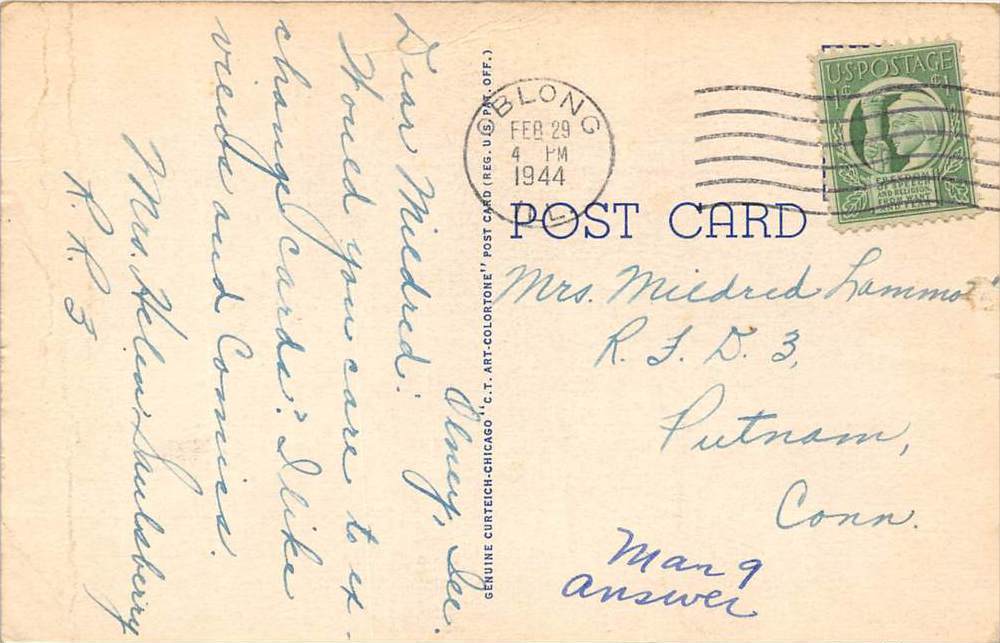 Olney, Ill.
Dear Mildred:
Would you care to ex-
change cards? I like
views and Comics.
Mrs. Helen Saulsberry
R. R. 3
GENUINE CURTEICH-CHICAGO "C.T. ART-COLORTONE" POST CARD (REG. U.S. PAT. OFF.)
OBLONG
FEB 29
4 PM
1944
ILL.
U.S. POSTAGE
1¢ 1¢
OF SPEECH
AND RELIGION
FROM WANT
AND FEAR
POST CARD
Mrs. Mildred
R. F. D. 3,
Putnam,
Conn.
Mar 9
Answer